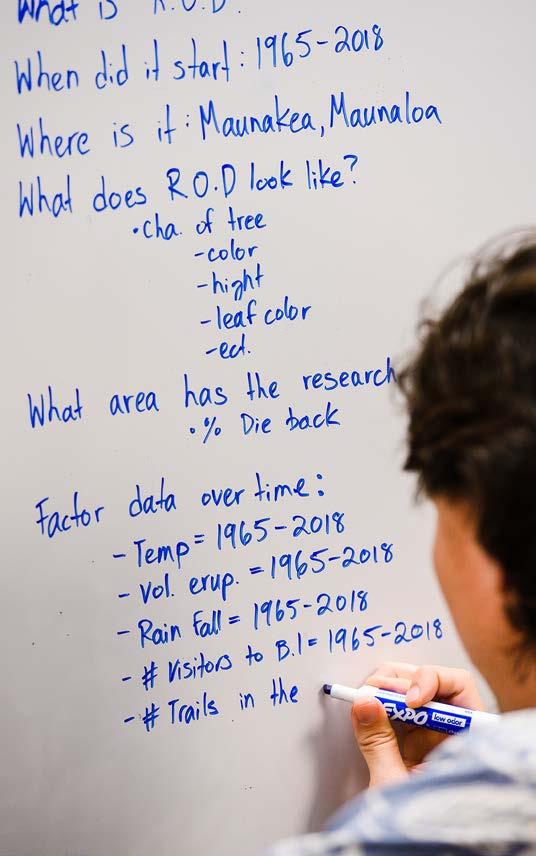 What is R.O.D?
When did it start: 1965-2018
Where is it: Maunakea, Maunaloa
What does R.O.D look like?
•Cha. of tree
-color
-hight
-leaf color
-ect.
What area has the research
•% Die back
Factor data over time:
-Temp= 1965-2018
-Vol. erup. =1965-2018
-Rain Fall= 1965-2018
-# Visitors to B.I= 1965-2018
-# Trails in the
EXPO low odor